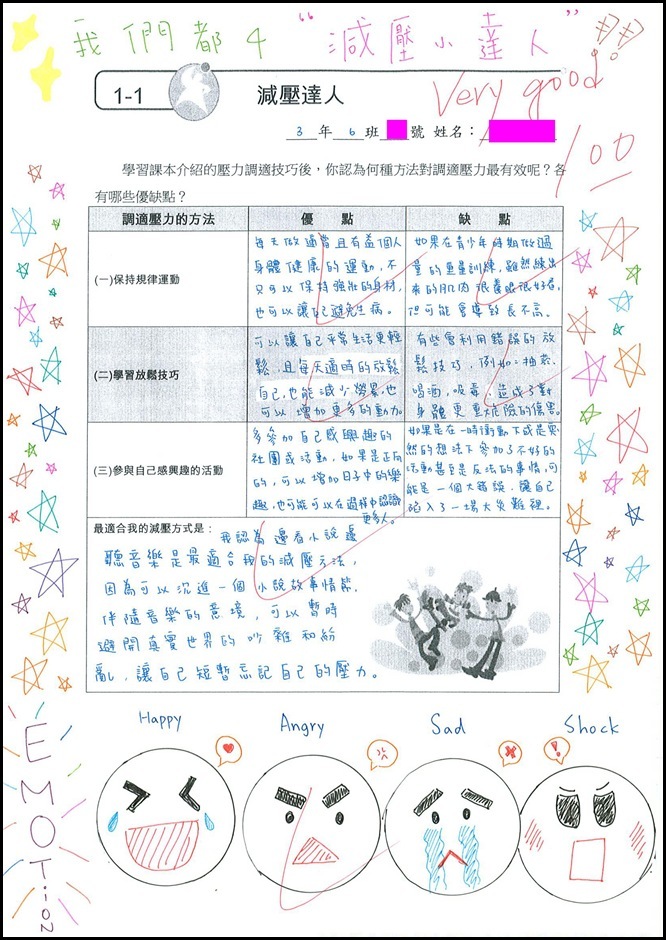 我們都是“減壓小達人”
Very good!
100
1-1
減壓達人
3年6班 號 姓名：
學習課本介紹的壓力調適技巧後，你認為何種方法對調適壓力最有效呢？各
有哪些優缺點？
調適壓力的方法
優 點
缺 點
(一)保持規律運動
每天做適當且有益個人
身體健康的運動，不
只可以保持強壯的身材，
也可以讓自己避免生病。
如果在青少年時期做過
量的重量訓練，雖然練出
來的肌肉很養眼很好看，
但可能會導致長不高。
(二)學習放鬆技巧
可以讓自己平常生活更輕
鬆，且每天適時的放鬆
自己，也能減少勞累，也
可以增加更多的動力。
有些會利用錯誤的放
鬆技巧，例如：抽菸、
喝酒，吸毒，造成了對
身體更重大危險的傷害。
(三)參與自己感興趣的活動
多參加自己感興趣的
社團或活動，如果是正向
的，可以增加日子中的樂
趣，也可能可以在過程中認識
更多人。
如果是在一時衝動下或是突
然的想法下參加了不好的
活動甚至是反法的事情，可
能是一個大錯誤，讓自己
陷入了一場大災難裡。
最適合我的減壓方式是：
我認為邊看小說邊
聽音樂是最適合我的減壓方法，
因為可以沉進一個小說故事情節，
伴隨音樂的意境，可以暫時
避開真實世界的吵雜和紛
亂，讓自己短暫忘記自己的壓力。
Happy
Angry
Sad
Shock
EMOTiON